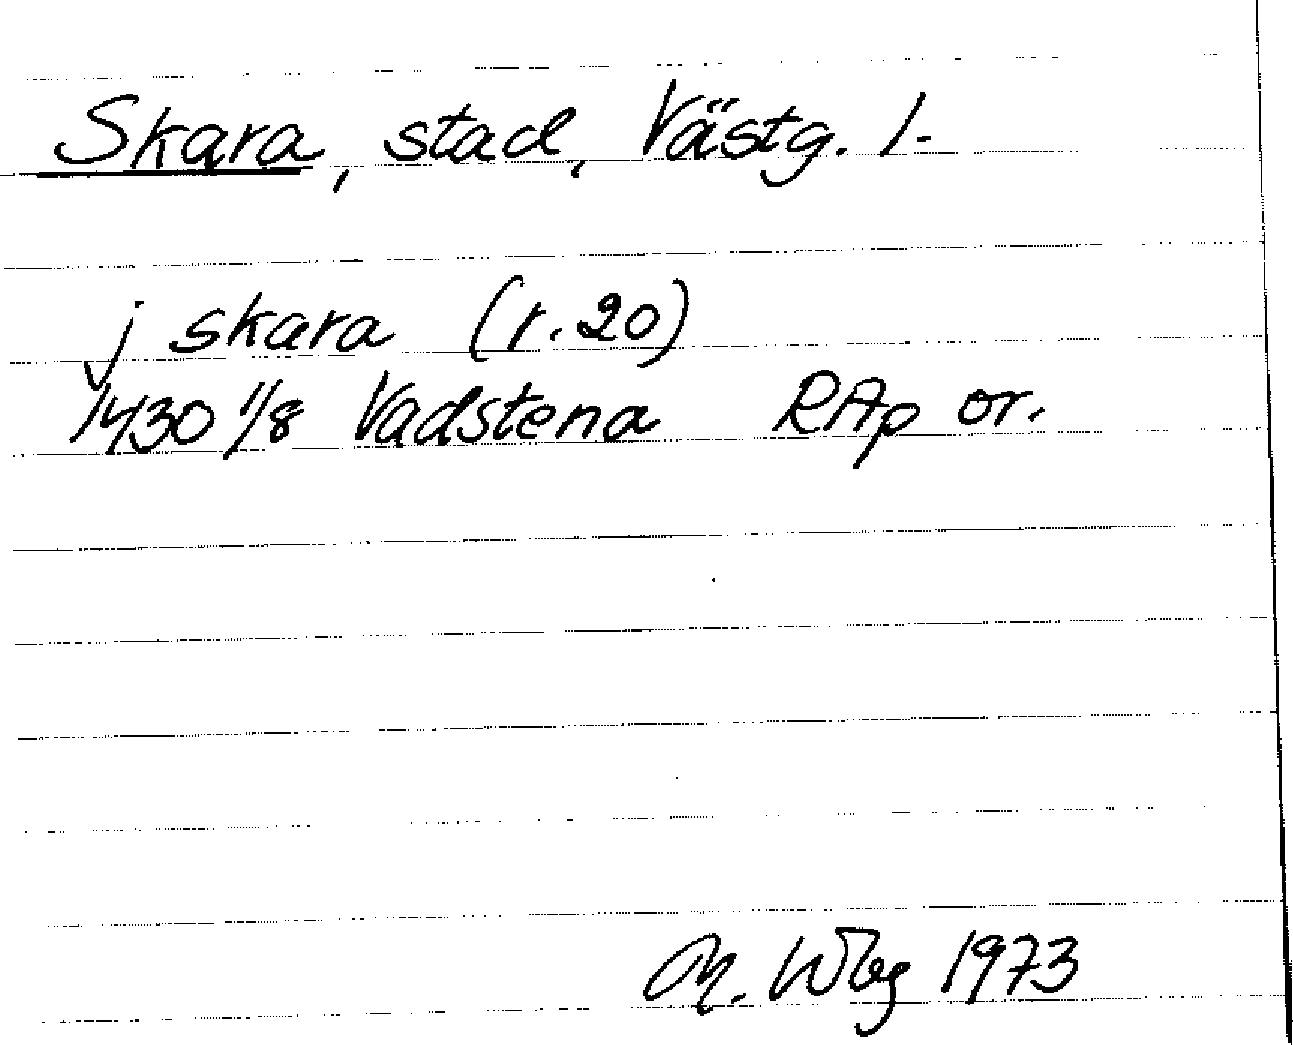 Skara, stad, Västg. l.
j skara (r. 20)
1430 1/8 Vadstena RAp or.
M. Wbg 1973